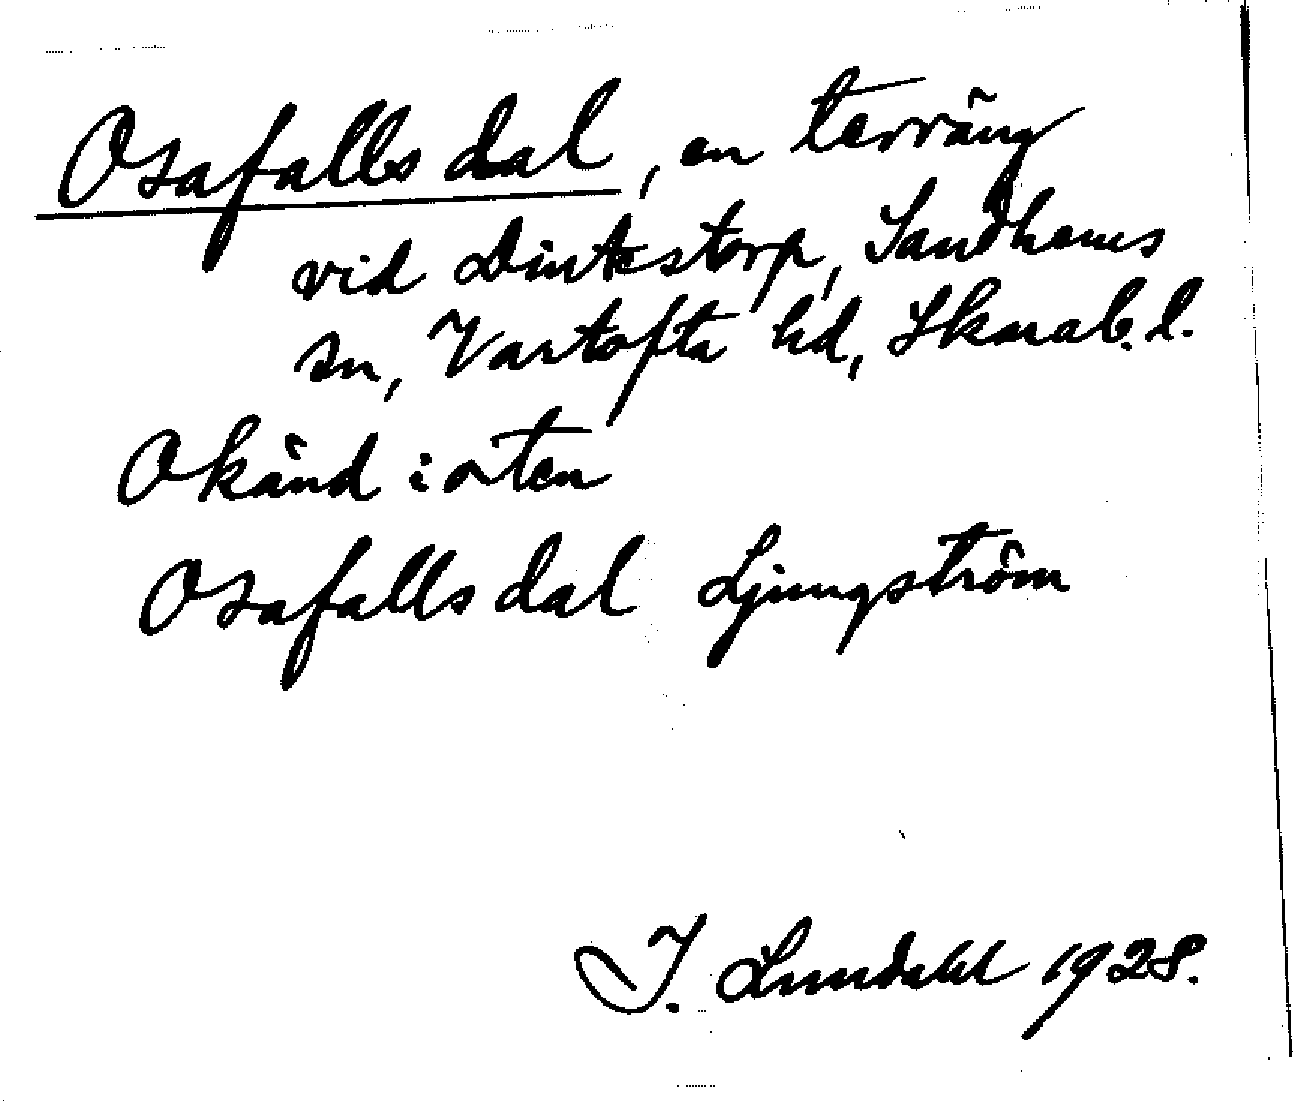 Osafallsdal, en terräng
vid Dintestorp, Sandhems
sn, Vartofta hd, Skarab. l.
Okänd i orten
Osafallsdal Ljungström
I. Lundahl 1928.